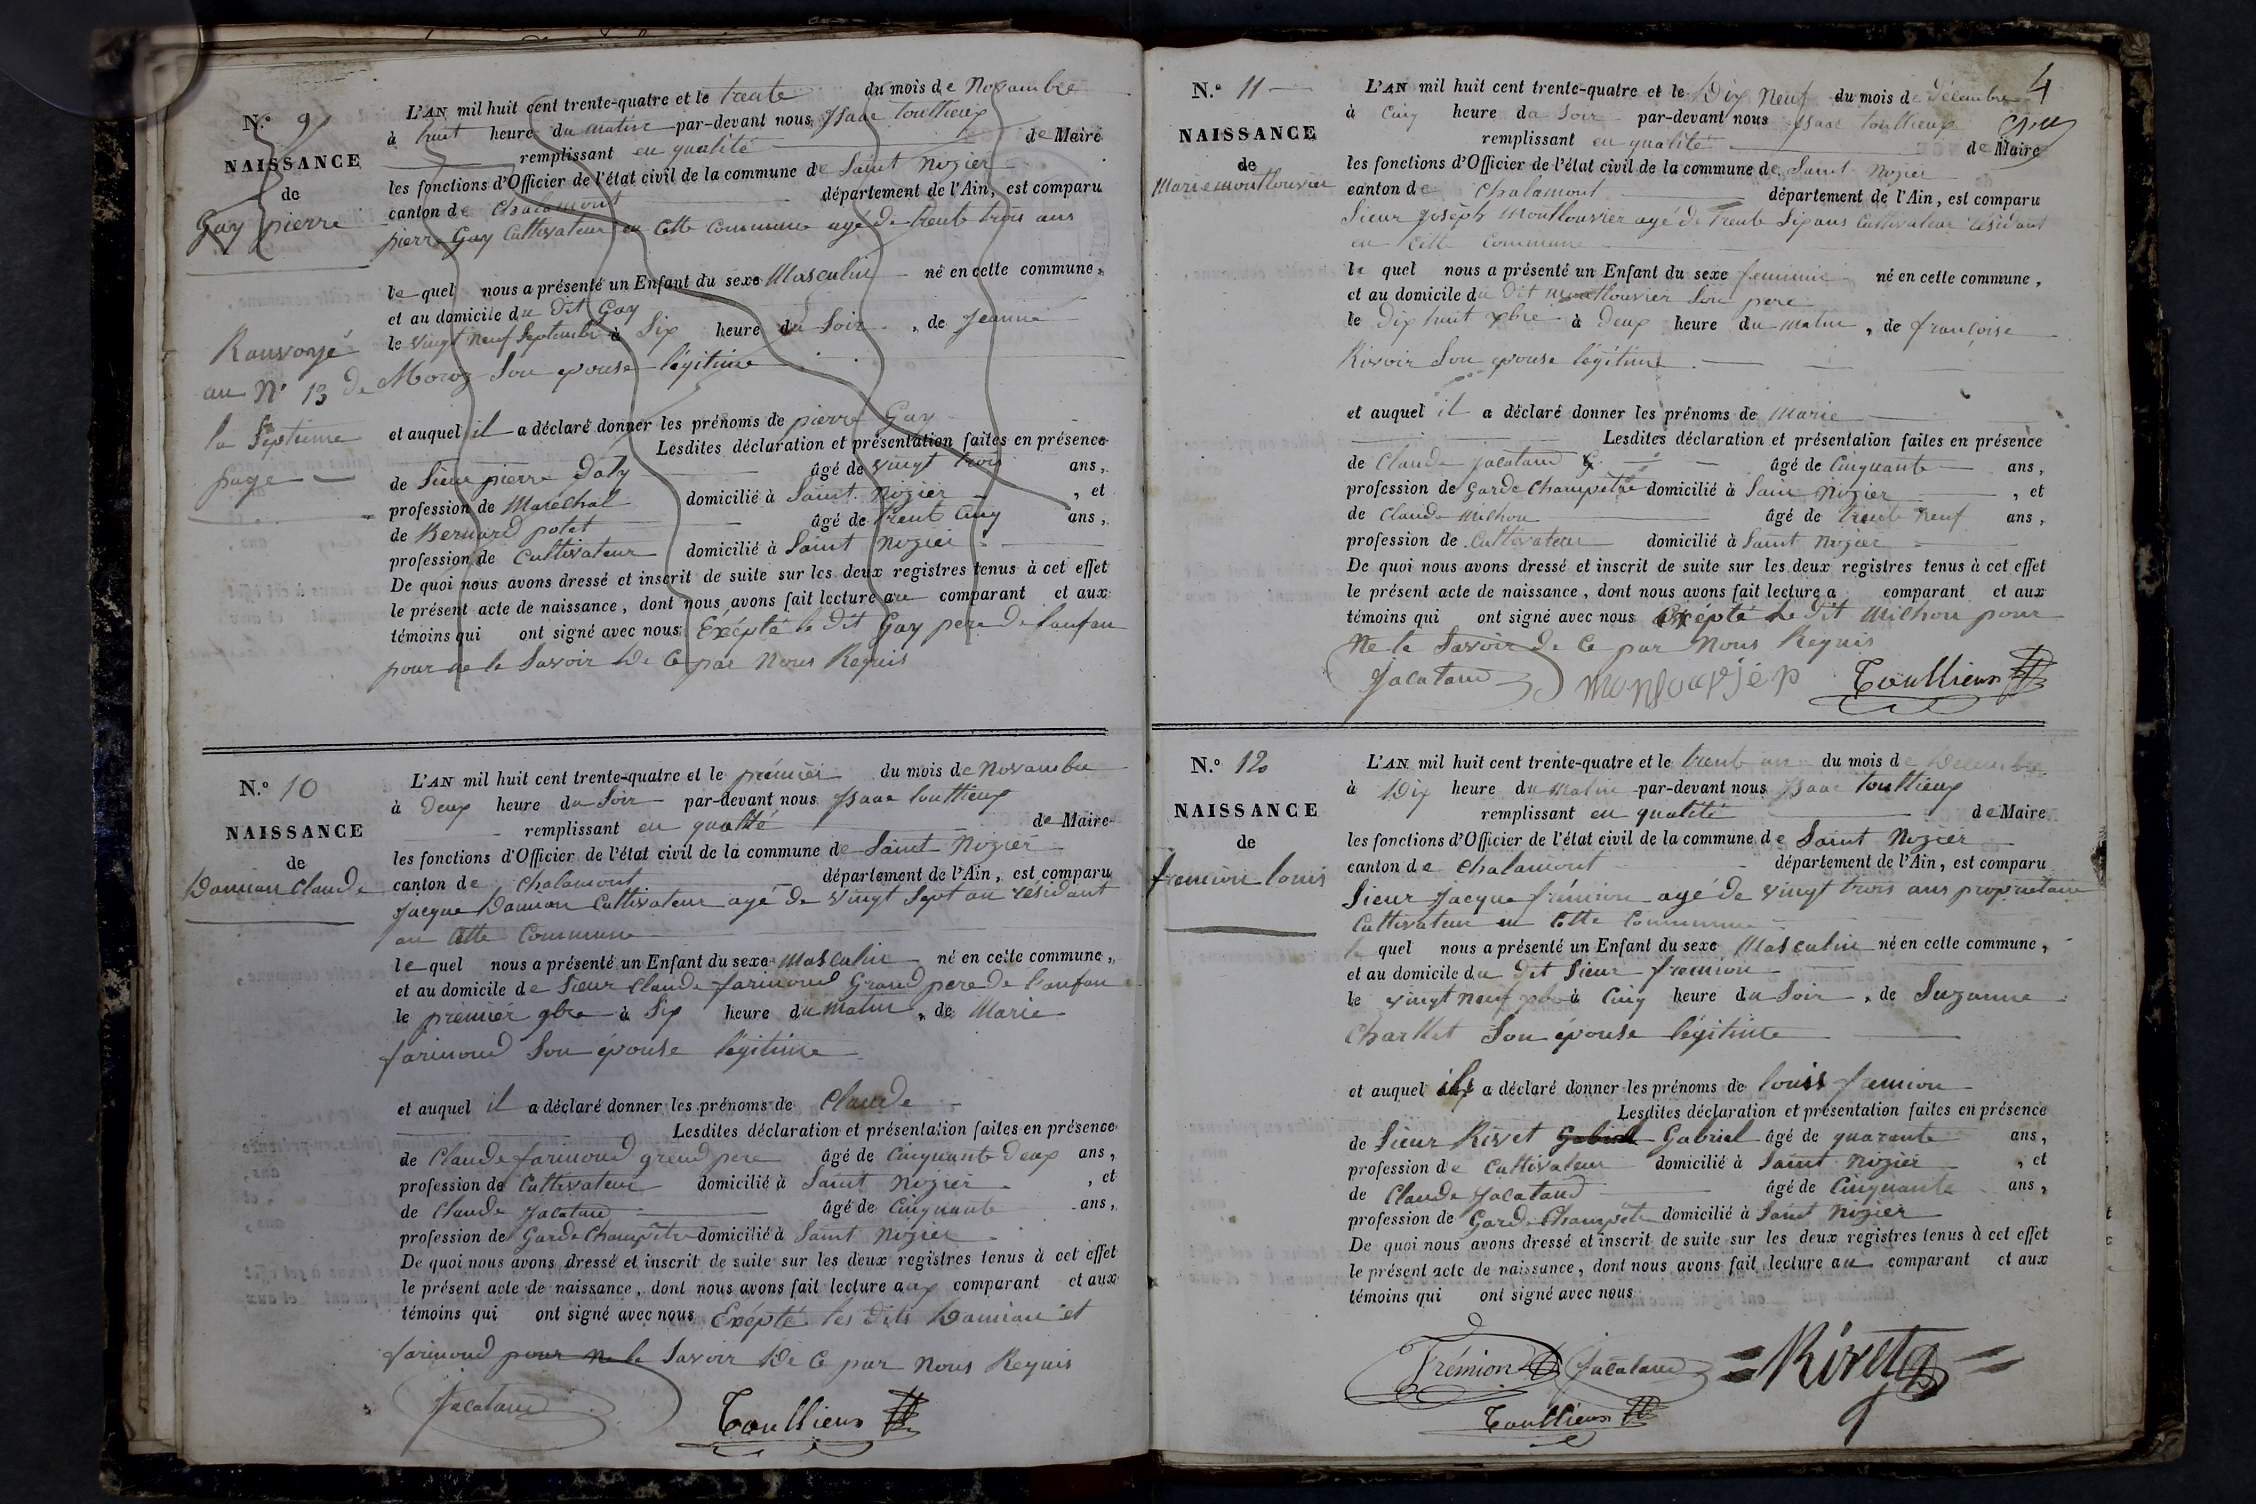 N.° 9
NAISSANCE
de
Gay pierre
Ranvoyé
au N° 13 de
la Septieme
page
L'AN mil huit cent trente-quatre et le trente du mois de Novambre
à huit heure du matin par-devant nous Ysaac Toullieux
remplissant en qualité de Maire
les fonctions d'Officier de l'état civil de la commune de Saint Nizier
canton de Chalamont département de l'Ain, est comparu
pierre Gay Cultivateur en Cette Commune agé de trente trois ans
le quel nous a présenté un Enfant du sexe Masculin né en cette commune,
et au domicile du Dit Gay
le vingt neuf Septembre à Six heure du Soir, de Jeanne
Moroz Son epouse légitime
et auquel il a déclaré donner les prénoms de pierre Gay
Lesdites déclaration et présentation faites en présence
de Sieur pierre Daly âgé de vingt trois ans,
profession de Maréchal domicilié à Saint Nizier, et
de Bernard potet âgé de trente Cinq ans,
profession de Cultivateur domicilié à Saint Nizier
De quoi nous avons dressé et inscrit de suite sur les deux registres tenus à cet effet
le présent acte de naissance, dont nous avons fait lecture au comparant et aux
témoins qui ont signé avec nous Exépté le Dit Gay pere de lanfan
pour ne le Savoir De Ce par Nous Requis
N.° 10
NAISSANCE
de
Damian Claude
L'AN mil huit cent trente-quatre et le prémier du mois de Novambre
à Deux heure du Soir par-devant nous Ysaac Toullieux
remplissant en qualité de Maire
les fonctions d'Officier de l'état civil de la commune de Saint Nizier
canton de Chalamont département de l'Ain, est comparu
Jacque Damian Cultivateur agé de Vingt Sept an résidant
an Cette Commune
le quel nous a présenté un Enfant du sexe Masculin né en cette commune,
et au domicile de Sieur Claude farimond Grand pere de l'anfan
le premiér 9bre à Six heure du matin, de Marie
farimond Son épouse légitime
et auquel il a déclaré donner les prénoms de Claude
Lesdites déclaration et présentation faites en présence
de Claude farimond grend pere âgé de Cinquante deux ans,
profession de Cultivateur domicilié à Saint Nizier, et
de Claude Jacataud âgé de Cinquante ans,
profession de Garde Champêtre domicilié à Saint Nizier
De quoi nous avons dressé et inscrit de suite sur les deux registres tenus à cet effet
le présent acte de naissance, dont nous avons fait lecture aux comparant et aux
témoins qui ont signé avec nous Exépté les Dits Damian et
farimond pour ne le Savoir De Ce par Nous Requis
Jacataud Toullieux
4
N.° 11
NAISSANCE
de
Marie montlouvier
L'AN mil huit cent trente-quatre et le Dix Neuf du mois de Décembre
à Cinq heure du Soir par-devant nous Ysaac Toullieux
remplissant en qualité de Maire
les fonctions d'Officier de l'état civil de la commune de Saint Nizier
canton de Chalamont département de l'Ain, est comparu
Sieur Joséph Montlouvier agé de Trente Six ans Cultivateur résidant
en Cette Commune
le quel nous a présenté un Enfant du sexe feminin né en cette commune,
et au domicile du Dit Montlouvier Son pere
le Dix huit xbre à Deux heure du matin, de françoise
Rivoir Son epouse légitime
et auquel il a déclaré donner les prénoms de Marie
Lesdites déclaration et présentation faites en présence
de Claude Jacataud âgé de Cinquante ans,
profession de Garde Champêtre domicilié à Sain Nizier, et
de Claude Milhon âgé de trente neuf ans,
profession de Cultivateur domicilié à Saint Nizier
De quoi nous avons dressé et inscrit de suite sur les deux registres tenus à cet effet
le présent acte de naissance, dont nous avons fait lecture a comparant et aux
témoins qui ont signé avec nous Exépté le Dit Milhon pour
Ne le Savoir De Ce par Nous Requis
Jacataud Toullieux
N.° 12
NAISSANCE
de
fremion louis
L'AN mil huit cent trente-quatre et le trente un du mois de Décembre
à Dix heure du Matin par-devant nous Ysaac Toullieux
remplissant en qualité de Maire
les fonctions d'Officier de l'état civil de la commune de Saint Nizier
canton de Chalamont département de l'Ain, est comparu
Sieur Jacque frémion agé de vingt trois ans propriétaire
Cultivateur en Cette Commune
le quel nous a présenté un Enfant du sexe Masculin né en cette commune,
et au domicile du Dit Sieur fremion
le vingt neuf xbre à Cinq heure du Soir, de Suzanne
Charllet Son épouse légitime
et auquel il a déclaré donner les prénoms de louis fremion
Lesdites déclaration et présentation faites en présence
de Sieur Rivet Gabriel âgé de quarante ans,
profession de Cultivateur domicilié à Saint Nizier, et
de Claude Jacataud âgé de Cinquante ans,
profession de Garde Champêtre domicilié à Saint Nizier
De quoi nous avons dressé et inscrit de suite sur les deux registres tenus à cet effet
le présent acte de naissance, dont nous avons fait lecture au comparant et aux
témoins qui ont signé avec nous
Frémion Jacataud Rivet
Toullieux